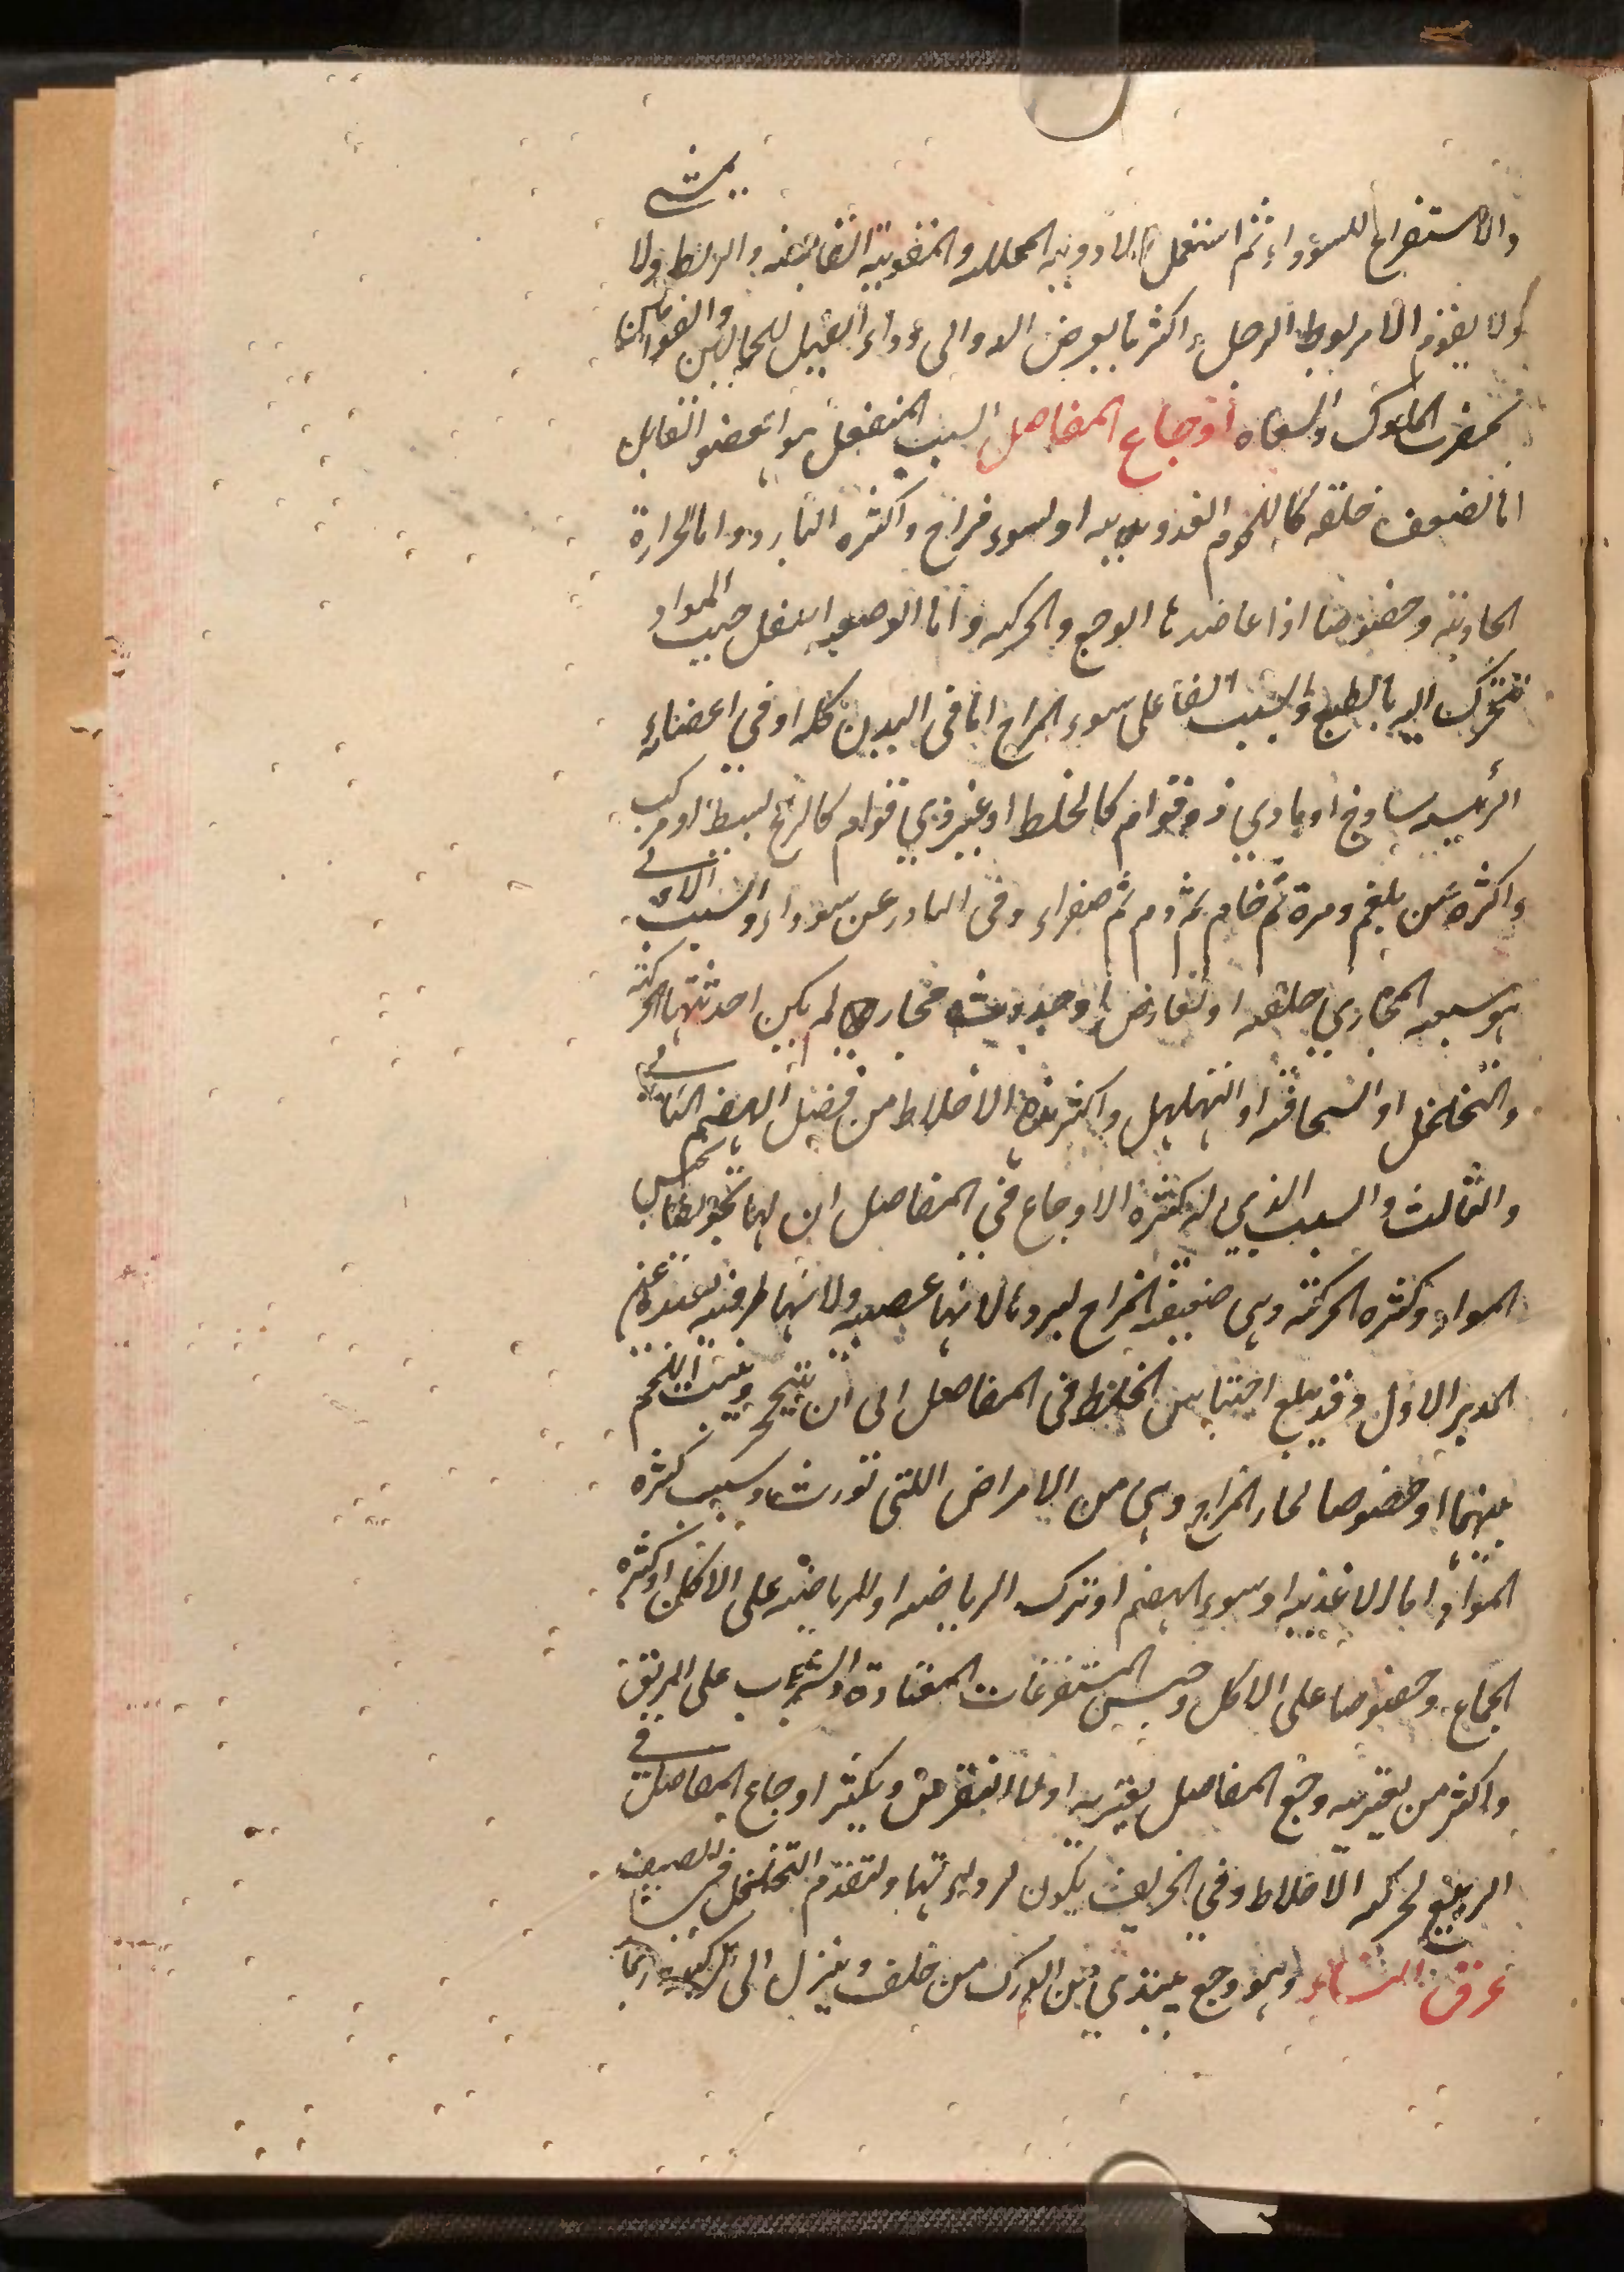 يمشي
والاستفراغ للسوداء ثم استعمل الادويه المحلله والمقويه القابضه والربط ولا
ولا يقوم الا مربوط الرجل واكثر ما يعرض الدوالى وداء الفيل للحمالين والقوامين
بحضرت الملوك والسعاه اوجاع المفاصل السبب المنفعل هو العضو القابل
اما لضعف خلقه كاللحوم الغدديه او لسوء مزاج واكثره البارد واما لحرارة
الجاذبة وخصوصا اذا عاضدها الوجع والحركه واما الوضعه اسفل حيث المواد
تتحرك اليه بالطبع والسبب الفاعلى سوء المزاج اما فى البدن كله او فى اعضائه
الرئيسه ساذج او مادي ذو قوام كالخلط او غير ذي قوام كالريح بسيط او مركب
واكثره عن بلغم ومرة ثم خام ثم دم ثم صفراء وفى النادر عن سوداء والسبب الالى
هو سعه المجاري خلقه او لعارض او حدوث مجار لم يكن احدثتها الحركته
والتخلخل او السخافته او التهلهل واكثر هذه الاخلاط من فضل الهضم الثانى
والثالث والسبب الذي له كثره الاوجاع فى المفاصل ان لها تجويفا يحبس
المواد وكثره الحركته وهى ضعيفة المزاج لبردها لانها عصبيه ولانها طرفيه بعيده عن
المدبر الاول وقد يبلغ احتباس الخلط فى المفاصل الى ان يتحجر وينبت اللحم
بينها وخصوصا لحار المزاج وهى من الامراض اللتى تورث وسبب كثره
المواد اما الاغذيه او سوء الهضم او ترك الرياضه او الرياضه على الاكل او كثره
الجماع وخصوصا على الاكل وحبس المستفرغات المعتادة والشراب على الريق
واكثر من يعتريه وجع المفاصل يعتريه اولا النقرس ويكثر اوجاع المفاصل فى
الربيع لحركه الاخلاط وفى الخريف يكون لردائتها ولتقدم التخلخل فى الصيف
عرق النساء وهو وجع يبتدي من الورك من خلف وينزل الى الركبه وربما